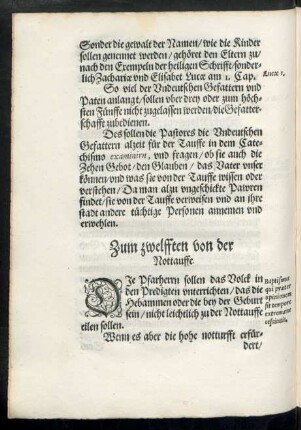 Sonder die gewalt der Namen/ wie die Kinder
sollen gennnet werden/ gehöret den Eltern zu/
nach den Exempeln der heiligen Schrifft/ sonder-
lich Zachariæ vnd Elisabet Lucæ am 1. Cap.
Lucæ 1.
So viel der Vndeutschen Gefattern vnd
Paten anlangt/ sollen vber drey oder zum höch-
sten Fünffe nicht zugelassen werden/ die Gefatter-
schafft zubedienen.
Des sollen die Pastores die Vndeutschen
Gefattern alzeit für der Tauffe in dem Cate-
chismo examiniren, vnd fragen/ ob sie auch die
Zehen Gebot/ den Glauben/ das Vater vnser
können/ vnd was sie von der Tauffe wissen oder
verstehen/ Da man alzu vngeschickte Pawren
findet/ sie von der Tauffe verweisen vnd an ihre
stadt andere tüchtige Personen annemen vnd
erwehlen.
Zum zwelfften von der
Nottauffe.
DIe Pfarherrn sollen das Volck in
den Predigten vnterrichten/ das die
Hebammen oder die bey der Geburt
sein/ nicht leichtlich zu der Nottauffe
eilen sollen.
Baptismus
qui præter
opinionem
sit tempore
extremæ ne
cessitatis.
Wenn es aber die hohe notturfft erfür-
dert/